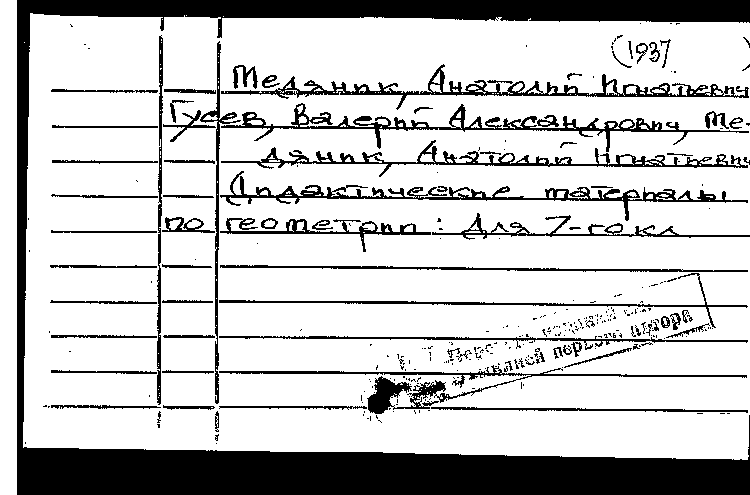 (1937 )
Медяник, Анатолий Игнатьевич
Гусев, Валерий Александрович, Ме-
дяник, Анатолий Игнатьевич
Дидактические материалы
по геометрии: Для 7-го кл
первого автора